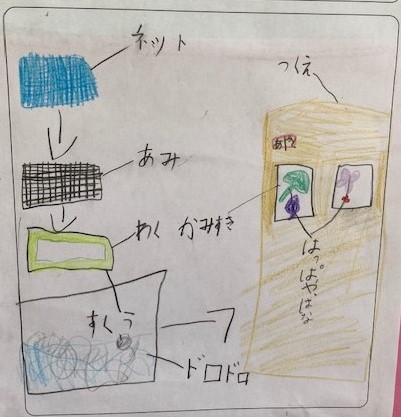 ネット
つくえ
あみ
わく
かみすき
すくう
はっぱやばな
ドロドロ